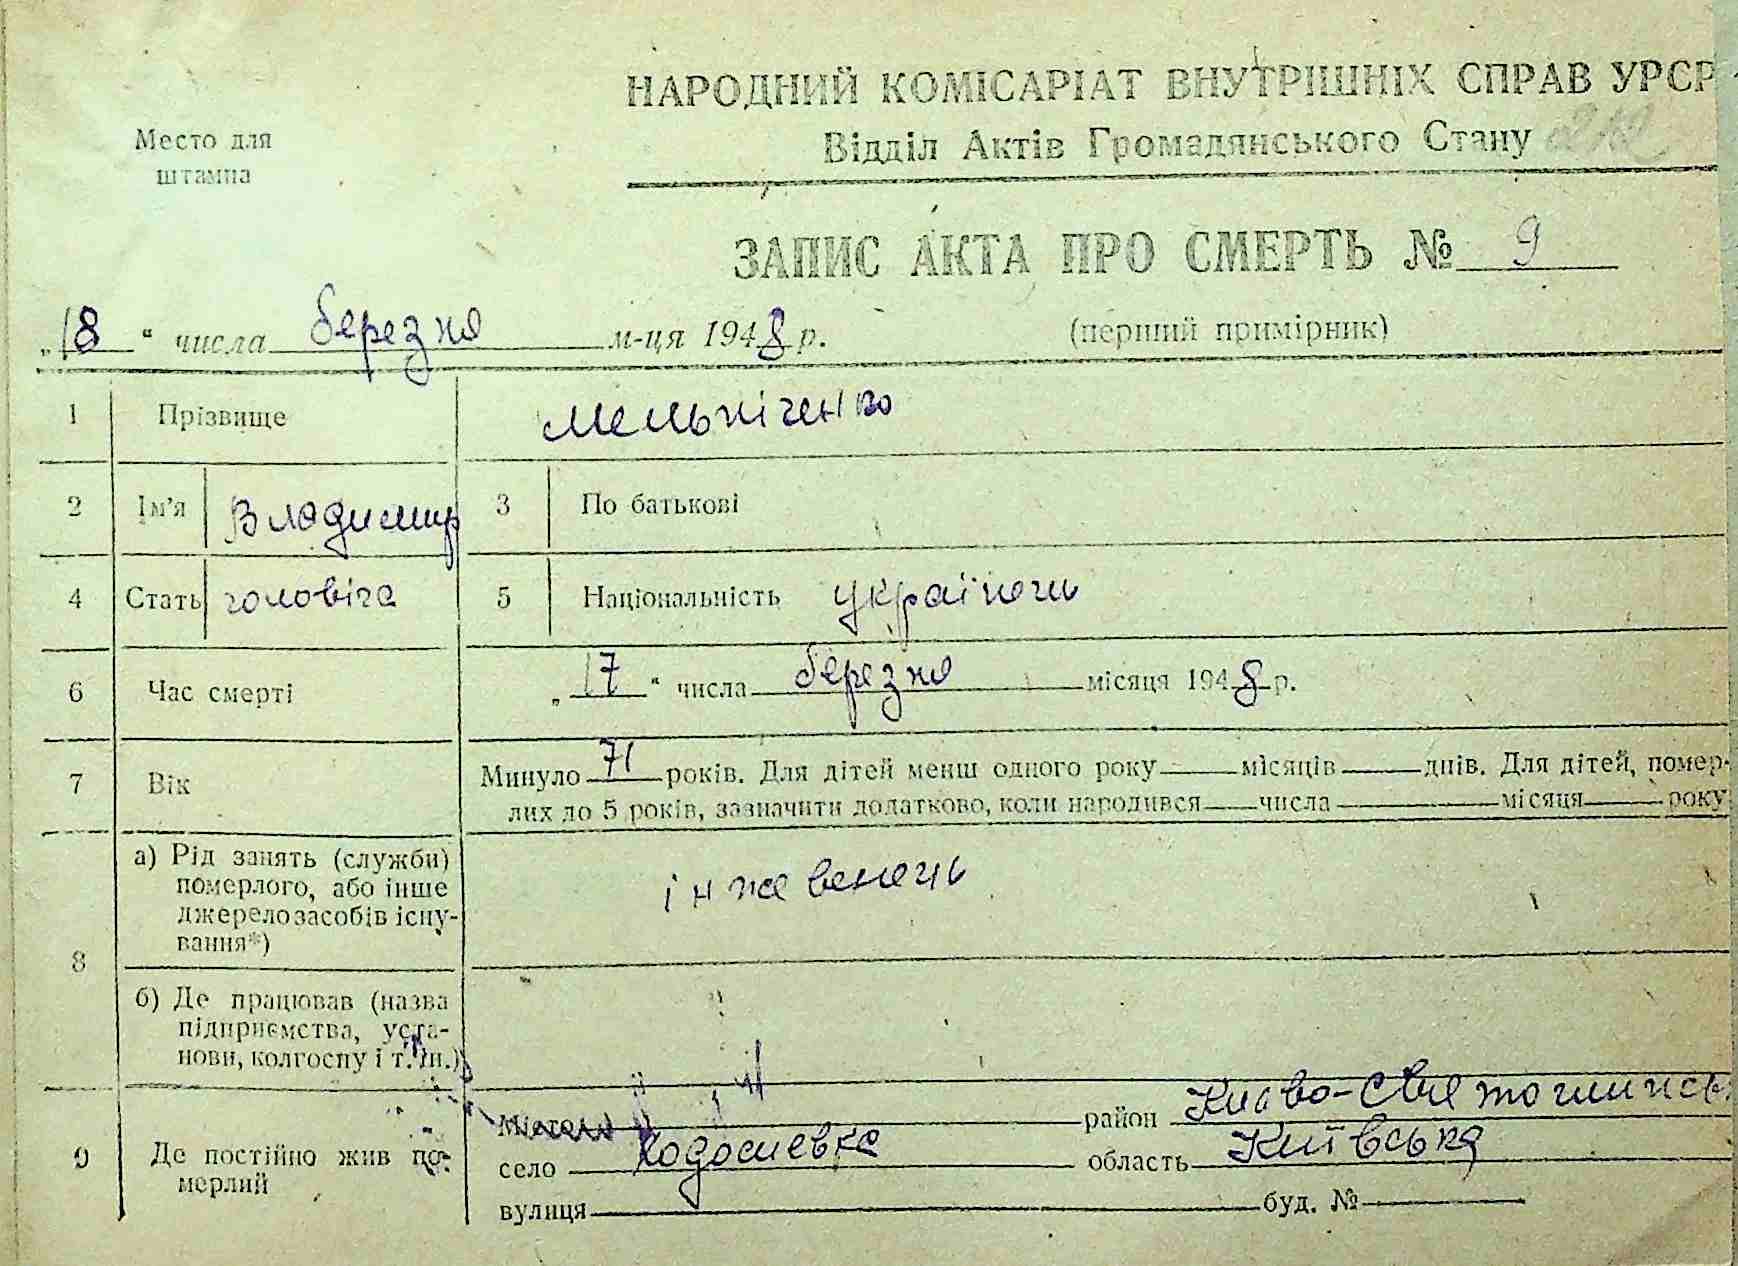 НАРОДНИЙ КОМІСАРІАТ ВНУТРІШНІХ СПРАВ УРСР
Место для штампа
Відділ Актів Громадянського Стану
ЗАПИС АКТА ПРО СМЕРТЬ № 9
„18“ числа березня м-ця 1948 р. (перший примірник)
1 Прізвище Мельніченко
2 Ім'я Владимир 3 По батькові
4 Стать чоловіча 5 Національність українець
6 Час смерті „17“ числа березня місяця 1948 р.
7 Вік Минуло 71 років. Для дітей менш одного року місяців днів. Для дітей, помер-
лих до 5 років, зазначити додатково, коли народився числа місяця року
8 а) Рід занять (служби)
померлого, або інше
джерело засобів існу-
вання*)
б) Де працював (назва
підприємства, уста-
нови, колгоспу і т. ін.)
9 Де постійно жив по-
мерлий
Місто район Києво-Святошинсь
село Ходосиевка область Київська
вулиця буд. №